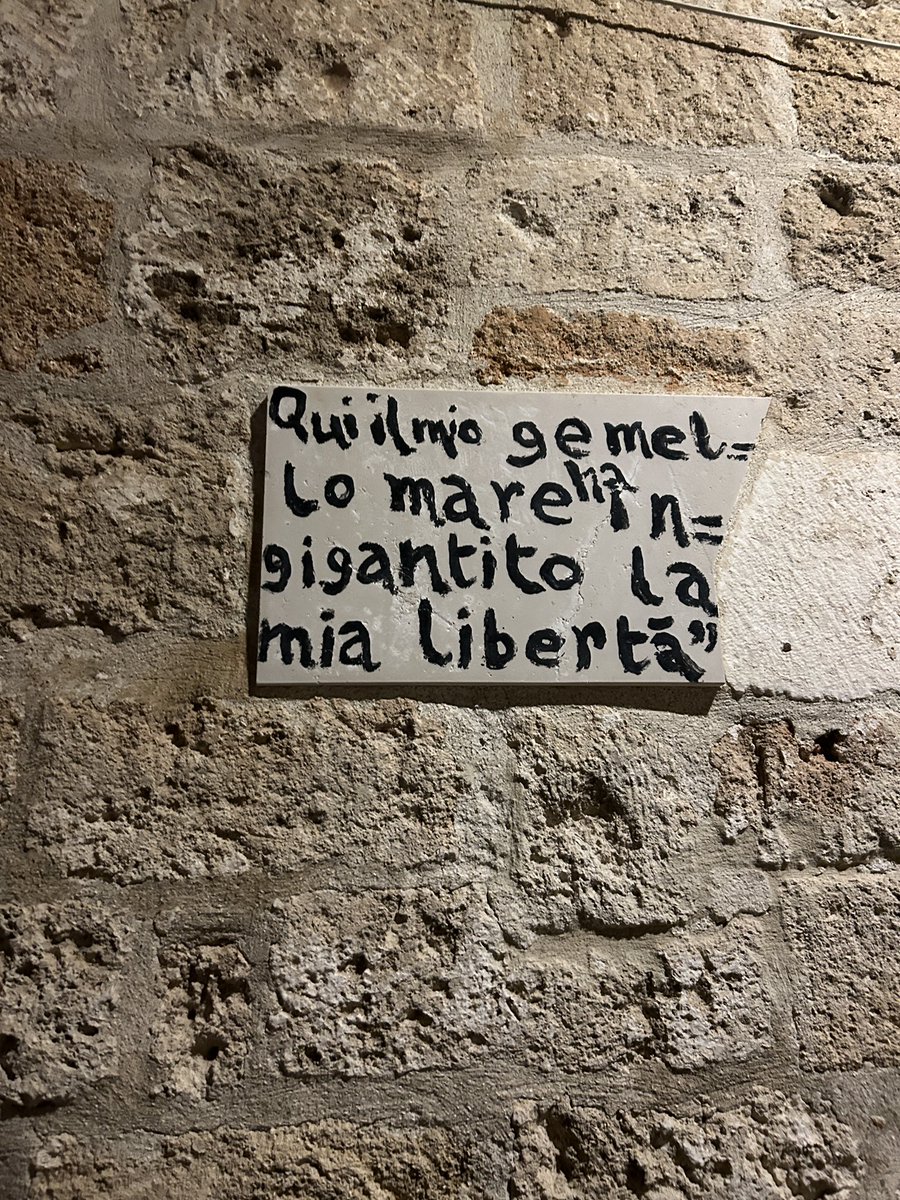 Qui il mio gemel=
lo mare ha in=
gigantito la
mia libertā”